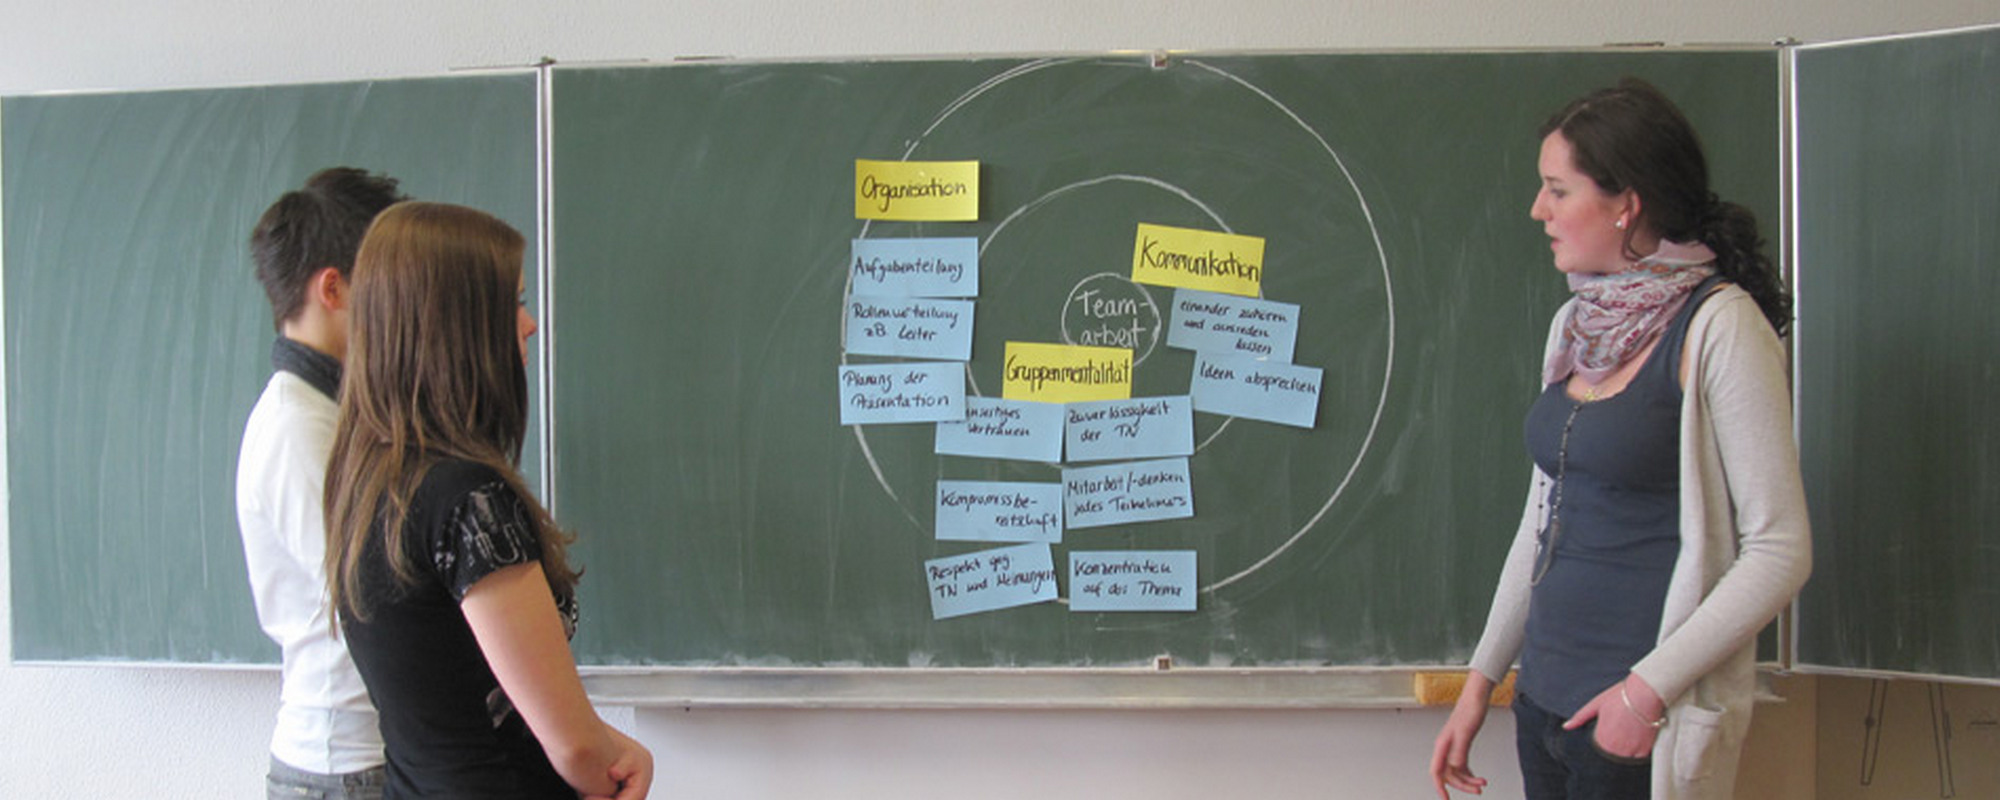 Organisation
Aufgabenteilung
Rollenverteilung
zB. Leiter
Planung der
Präsentation
Team-
arbeit
Kommunikation
einander zuhören
und ausreden
lassen
Ideen absprechen
Gruppenmentalität
Vertrauen
Zuverlässigkeit
der TN
Kompromissbe-
reitschaft
Mitarbeit/-denken
jedes Teilnehmers
Respekt geg.
TN und Meinungen
Konzentration
auf das Thema